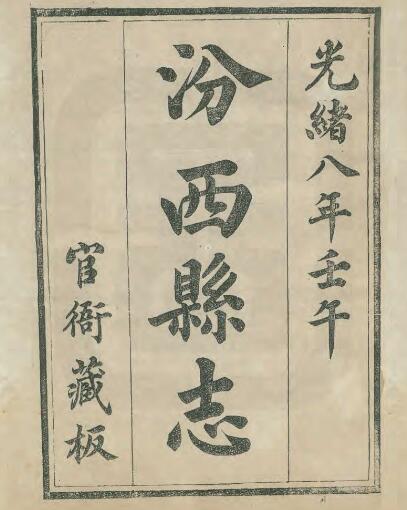 光緒八年壬午
汾西縣志
官衙藏板